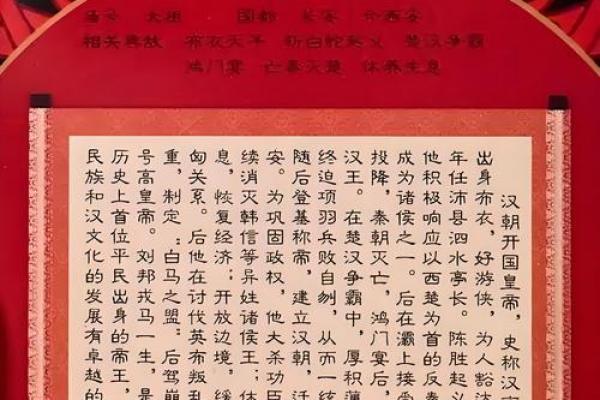 庙号 太祖 国都 长安 今西安
相关典故 布衣天子 斩白蛇起义 楚汉争霸
鸿门宴 亡秦灭楚 休养生息
汉朝开国皇帝，史称汉
出身布衣，好游侠，为人豁达
年任沛县泗水亭长。陈胜起义
他积极响应以西楚为首的反秦
成为诸侯之一。后在灞上接受
投降，秦朝灭亡，鸿门宴后，
汉王。在楚汉争霸中，厚积薄
终迫项羽兵败自刎，从而一统
随后登基称帝，建立汉朝，迁
安。为巩固政权，他大杀功臣
续消灭韩信等异姓诸侯王；休
息，恢复经济；开放边境，缓
匈关系。后他在讨伐英布叛乱
重，制定“白马之盟”后驾崩
号高皇帝。刘邦戎马一生，是
历史上首位平民出身的帝王，
民族和汉文化的发展有卓越的